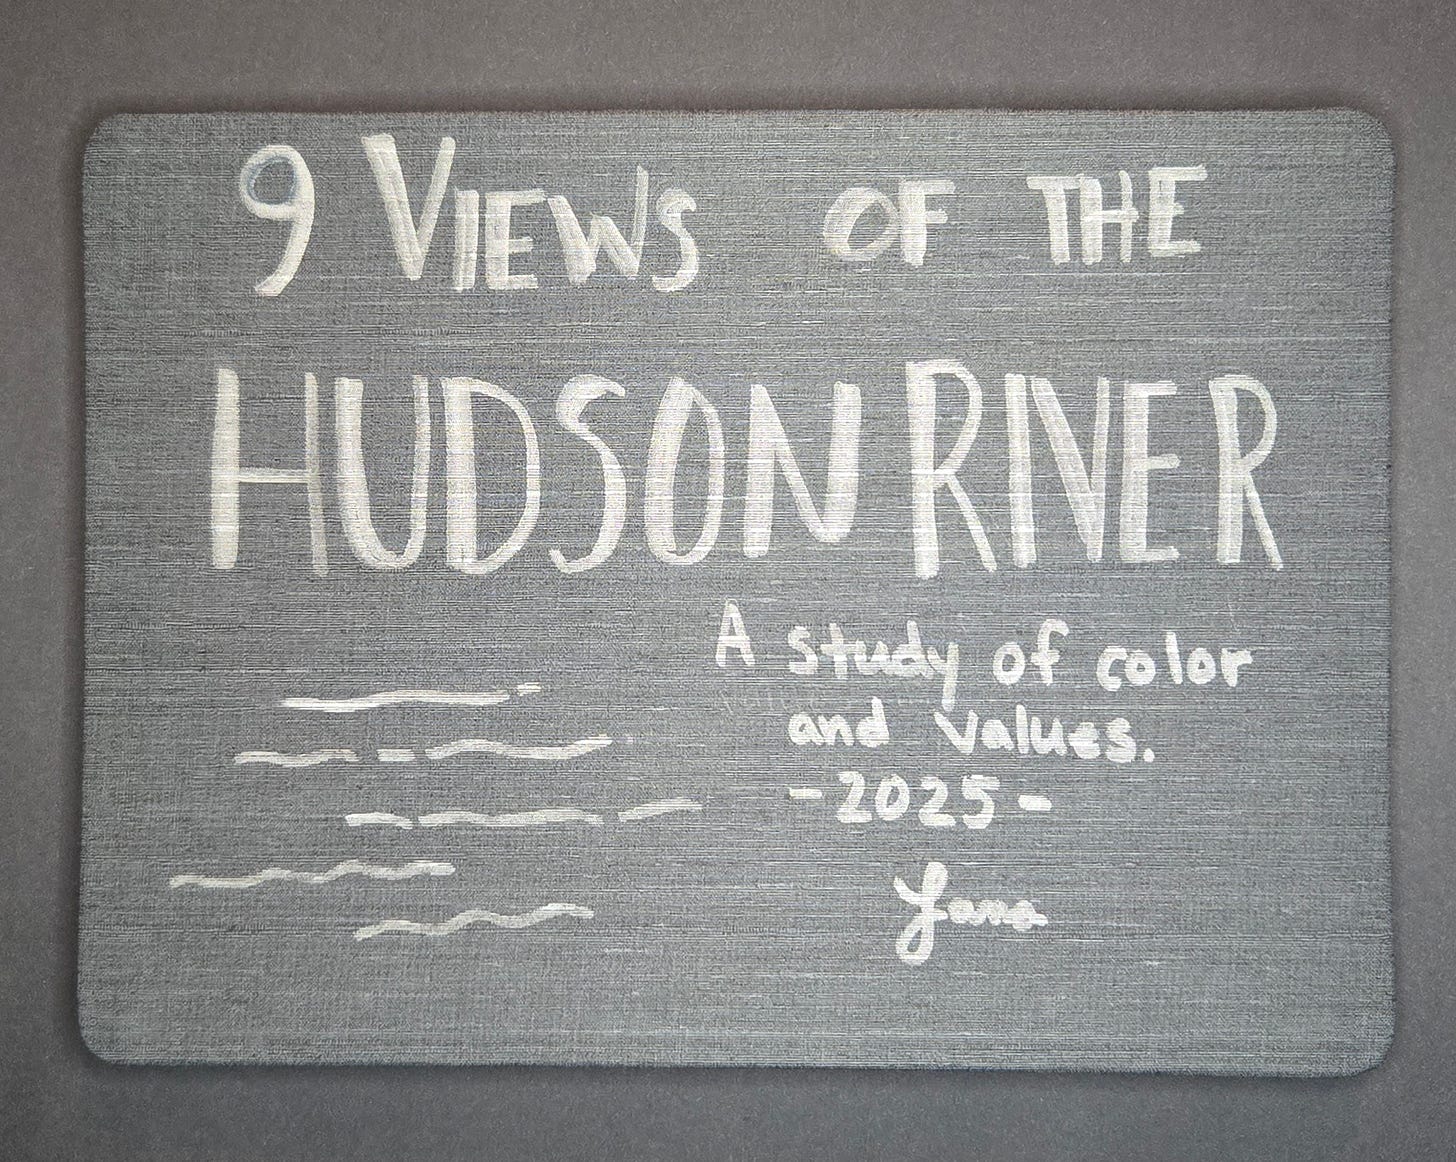 9 VIEWS OF THE
HUDSON RIVER
A study of color
and values.
-2025-
Yana